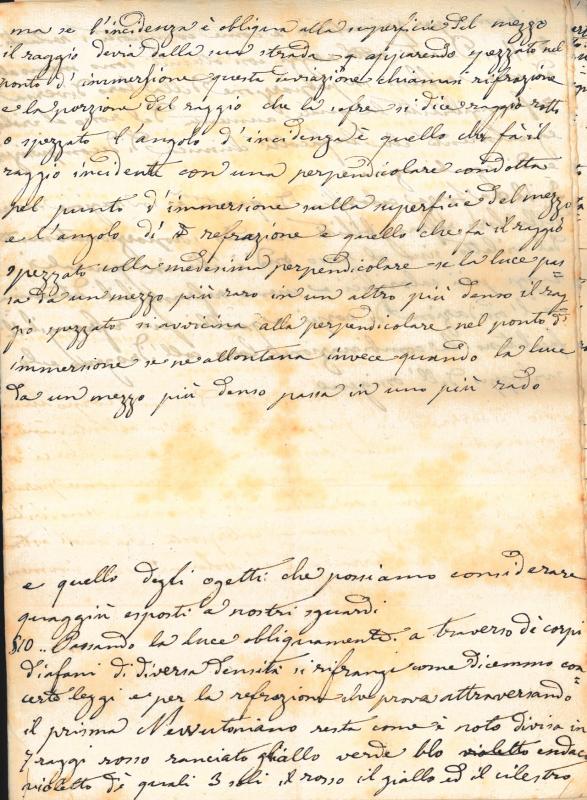 ma se l'incidenza è obliqua alla superficie del mezzo
il raggio devia dalla sua strada apparendo spezzato nel
ponto d'immersione questa deviazione chiamasi rifrazione
e la porzione del raggio che la sofre si dice raggio rotto
o spezzato l'angolo d'incidenza è quello che fà il
raggio incidente con una perpendicolare condotta
nel punto d'immersione sulla superficie del mezzo
e l'angolo di refrazione è quello che fà il raggio
spezzato colla medesima perpendicolare se la luce pas=
sa da un mezzo più raro in un altro più denso il rag=
gio spezzato si avvicina alla perpendicolare nel ponto d'
immersione se ne allontana invece quando la luce
da un mezzo più denso passa in uno più rado
e quello degli ogetti che possiamo considerare
quaggiù esposti a nostri sguardi
§10.. Passando la luce obliquamente a traverso de corpi
diafani di diversa densità si rifrange come dicemmo con
certe leggi e per la refrazione che prova attraversando
il prisma Newutoniano resta come è noto divisa in
7 raggi rosso ranciato giallo verde blo violetto endaco
violetto de quali 3 soli il rosso il giallo ed il cilestro